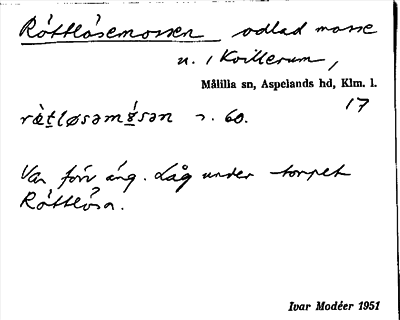 Röttlösemossen odlad mosse
u. / Kvillerum,
Målilla sn, Aspelands hd, Klm. l.
17
60.
Var förr äng. Låg under torpet
Röttlösa.
Ivar Modéer 1951